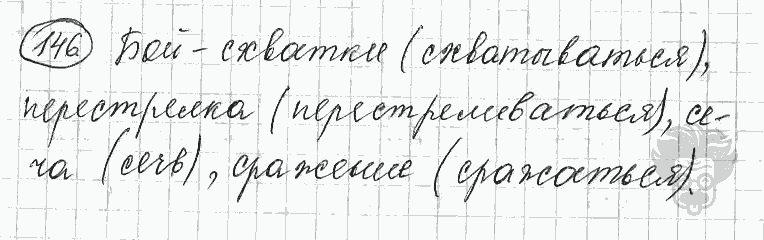 146 Бой - схватки (схватываться),
перестрелка (перестреливаться), се-
ча (сечь), сражение (сражаться).